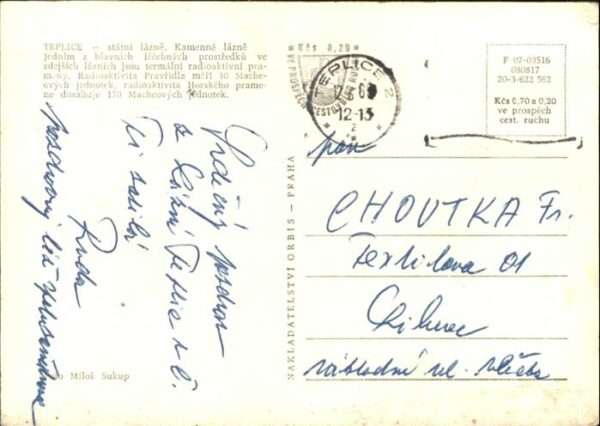 TEPLICE — státní lázně. Kamenné lázně
jedním z hlavních léčebných prostředků ve
zdejších lázních jsou termální radioaktivní pra-
meny. Radioaktivita Pravřídla měří 10 Mache-
ových jednotek, radioaktivita Horského prame-
ne dosahuje 170 Macheových jednotek.
Srdečný pozdrav
z Lázní Teplic v Č.
Ti zasílá
Ruda
Foto Miloš Sukup
NAKLADATELSTVÍ ORBIS — PRAHA
Kčs 0,20
TEPLICE 2
12-13
2
F 07-03516
030817
20-3-622 562
Kčs 0,70 a 0,20
ve prospěch
cest. ruchu
pan
CHOUTKA Fr.
Textilova 01
Liberec
nákladní